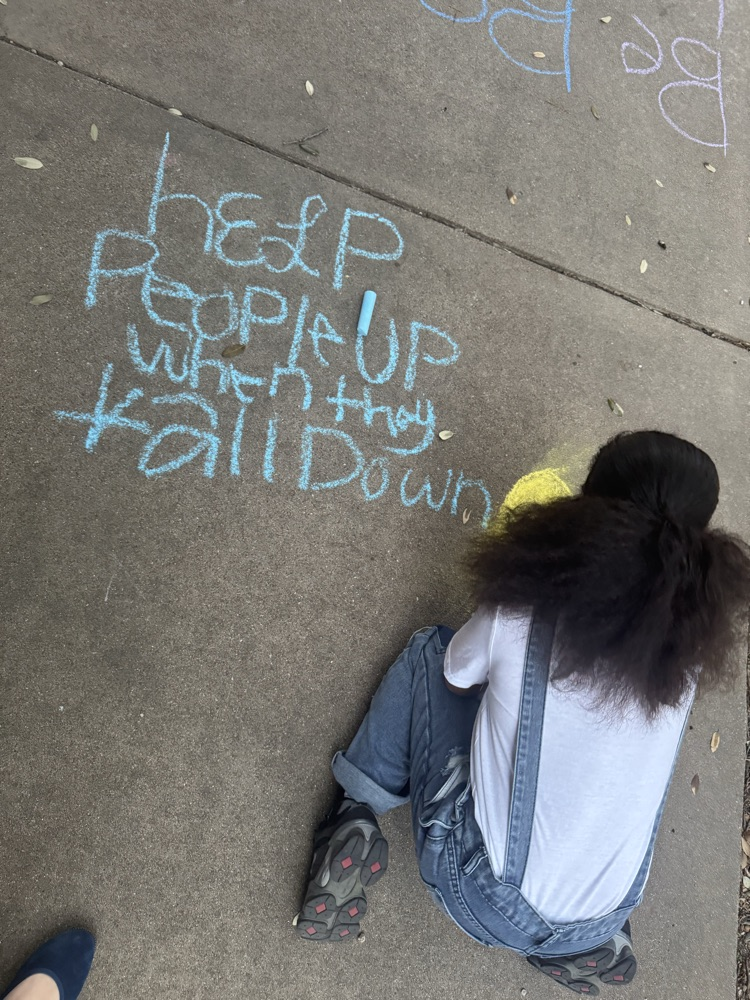 hELP
PEOPlE UP
whEn thay
fall DOwn